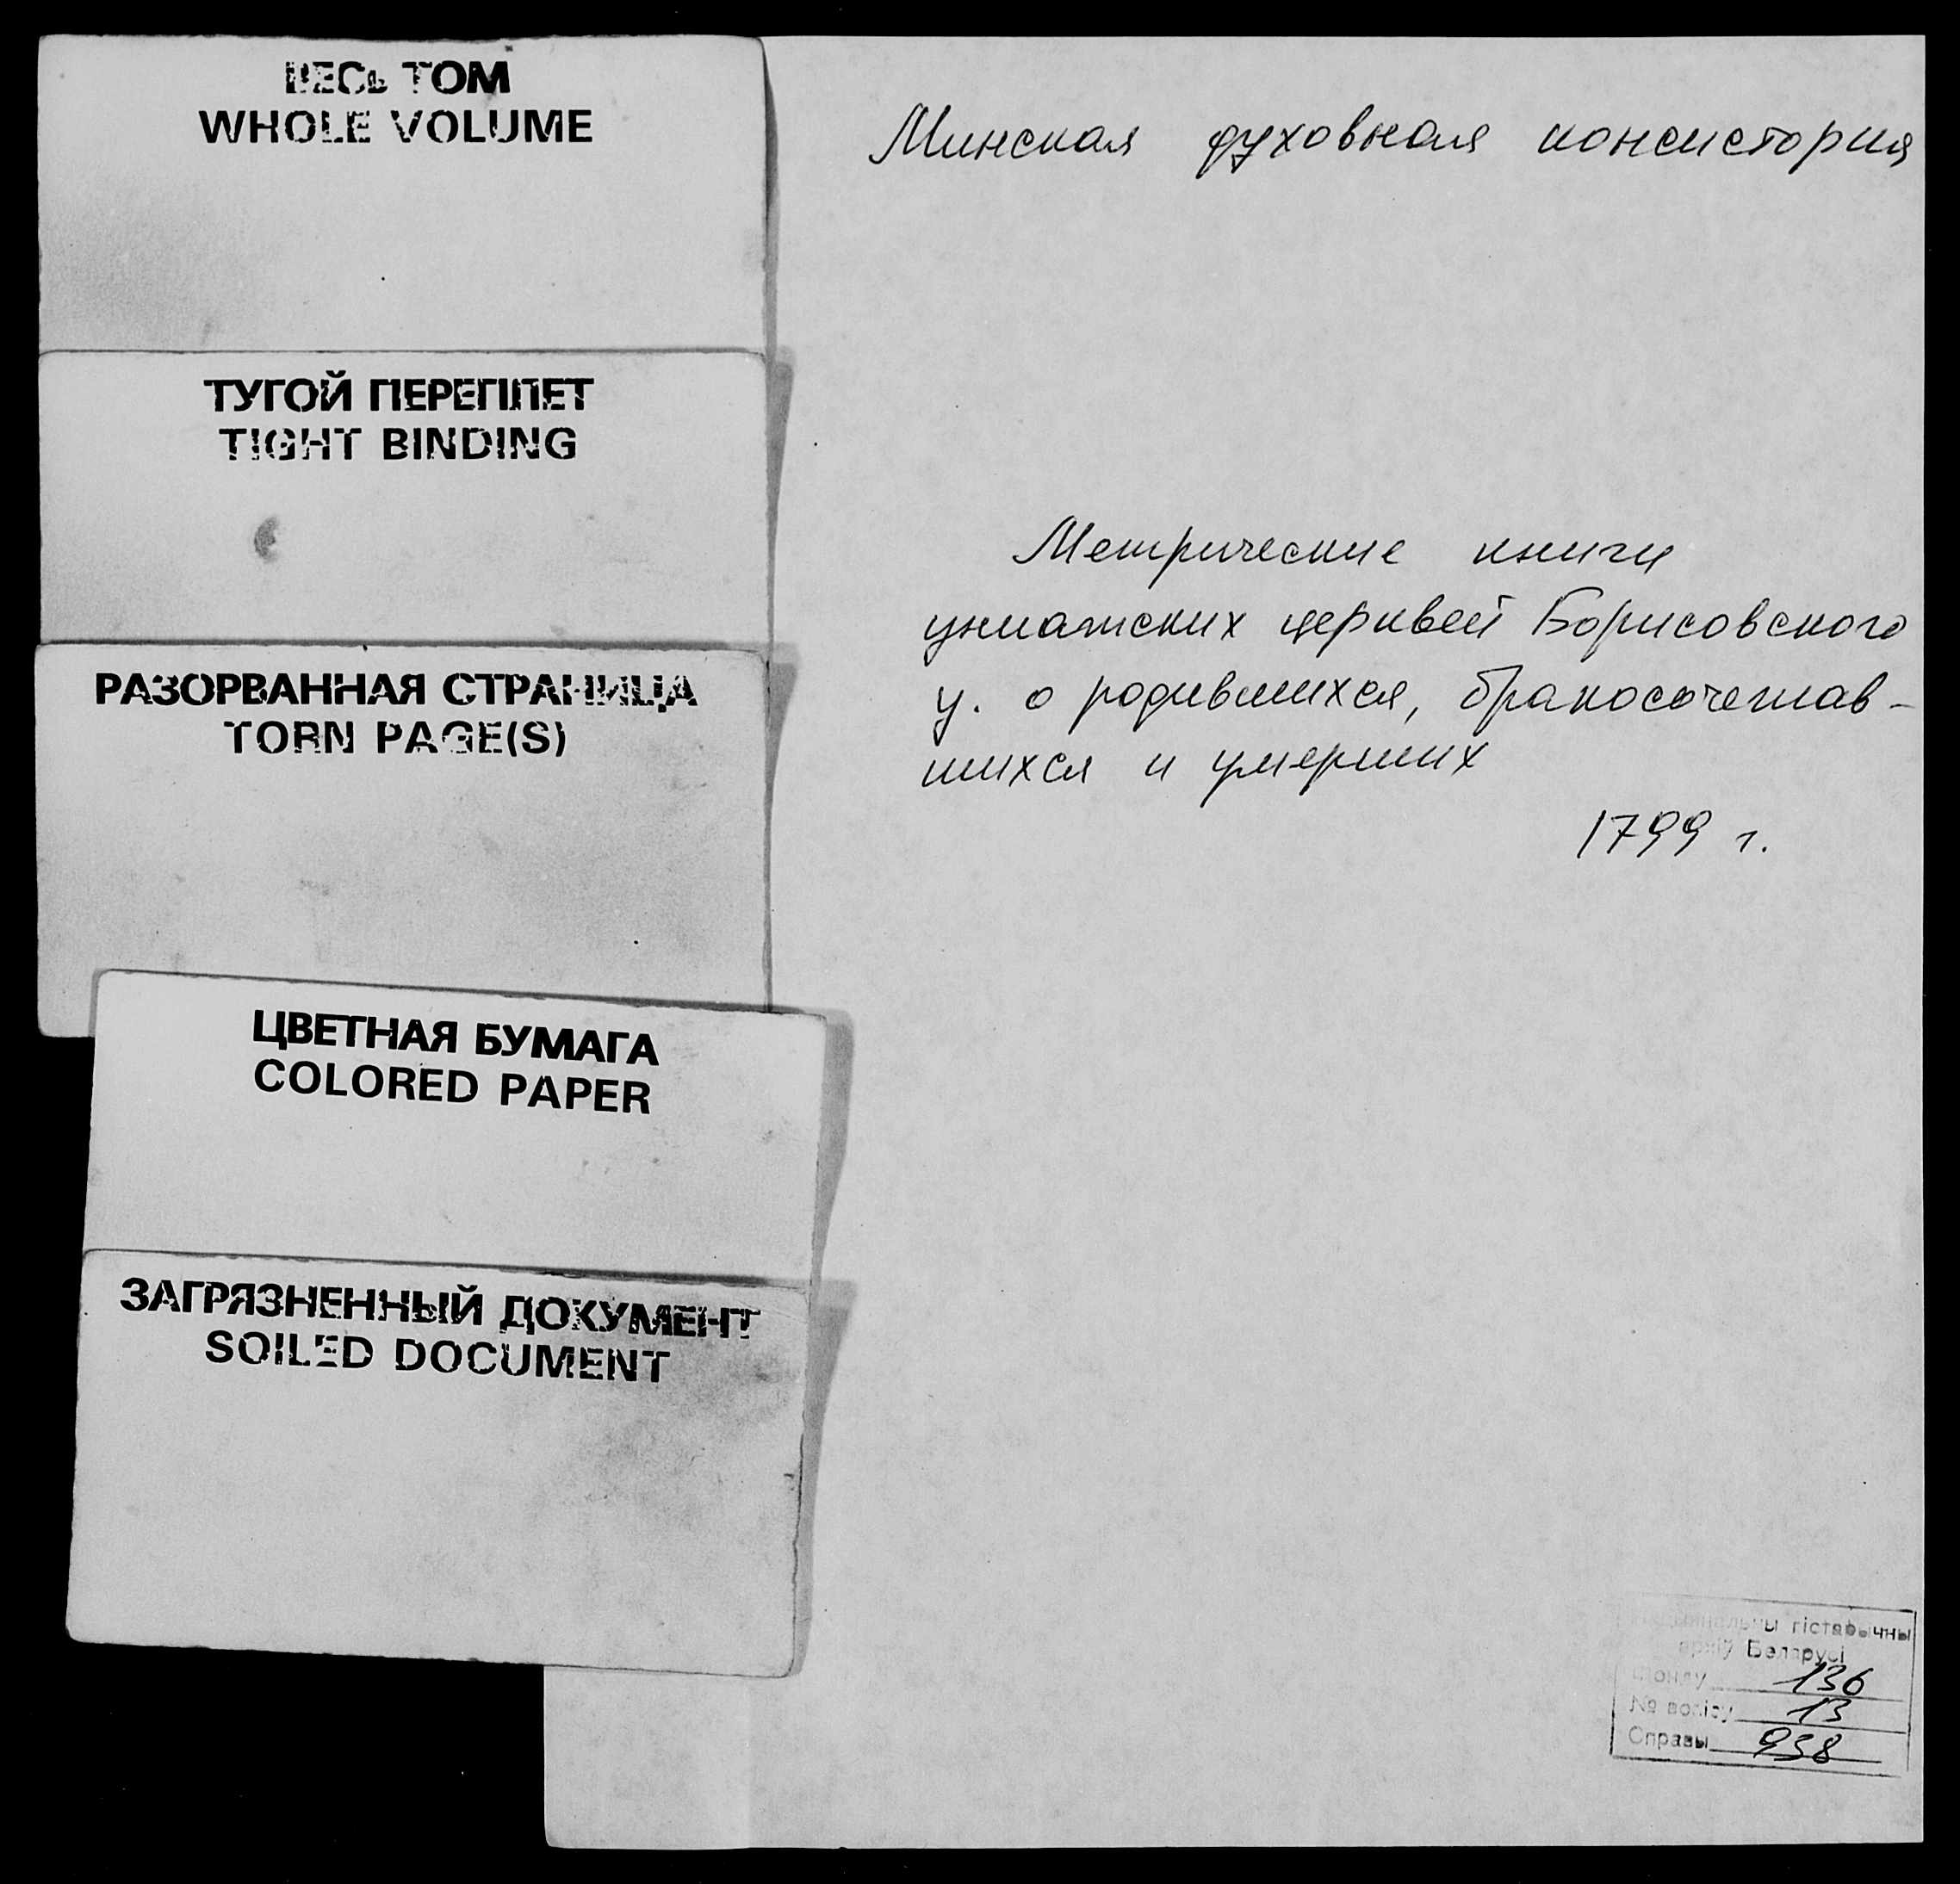 ВЕСЬ ТОМ
WHOLE VOLUME
ТУГОЙ ПЕРЕПЛЕТ
TIGHT BINDING
РАЗОРВАННАЯ СТРАНИЦА
TORN PAGE(S)
ЦВЕТНАЯ БУМАГА
COLORED PAPER
ЗАГРЯЗНЕННЫЙ ДОКУМЕНТ
SOILED DOCUMENT
Минская духовная консистория
Метрические книги
униатских церквей Борисовского
у. о родившихся, бракосочетав-
шихся и умерших
1799 г.
Нацыянальны гістарычны
архіў Беларусі
Фонду 136
№ вопісу 13
Справы 938